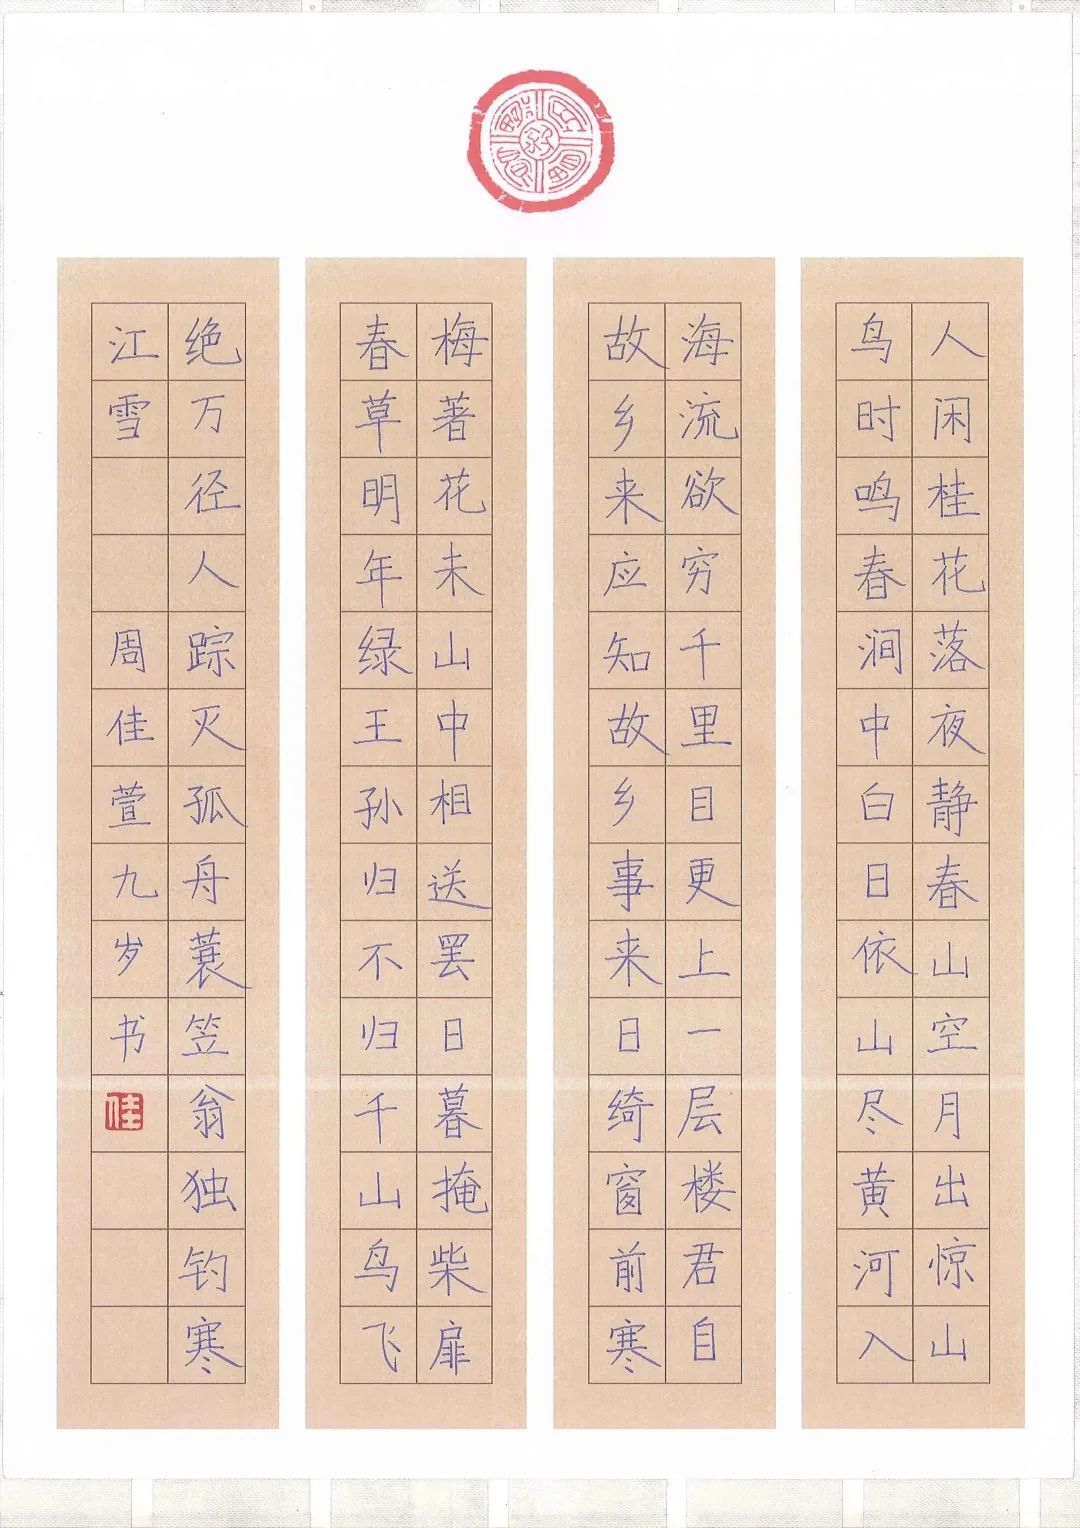 人闲桂花落夜静春山空月出惊山
鸟时鸣春涧中白日依山尽黄河入
海流欲穷千里目更上一层楼君自
故乡来应知故乡事来日绮窗前寒
梅著花未山中相送罢日暮掩柴扉
春草明年绿王孙归不归千山鸟飞
绝万径人踪灭孤舟蓑笠翁独钓寒
江雪
周佳萱九岁书
佳